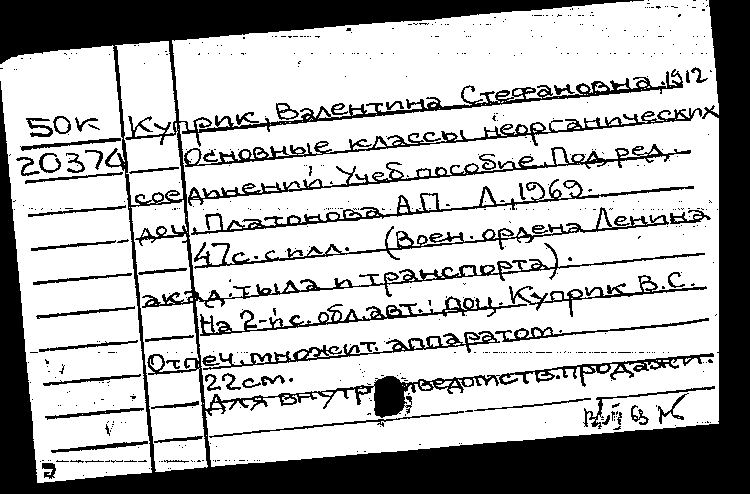 50к Куприк, Валентина Стефановна, 1912
20374 Основные классы неорганических
соединений. Учеб. пособие. Под ред.
доц. Платонова А.П. Л., 1969.
47с. с илл. (Воен. ордена Ленина
акад. тыла и транспорта).
На 2-й с. обл. авт.: доц. Куприк В.С.
Отпеч. множит. аппаратом.
22 см.
Для внутриведомств. продажи.